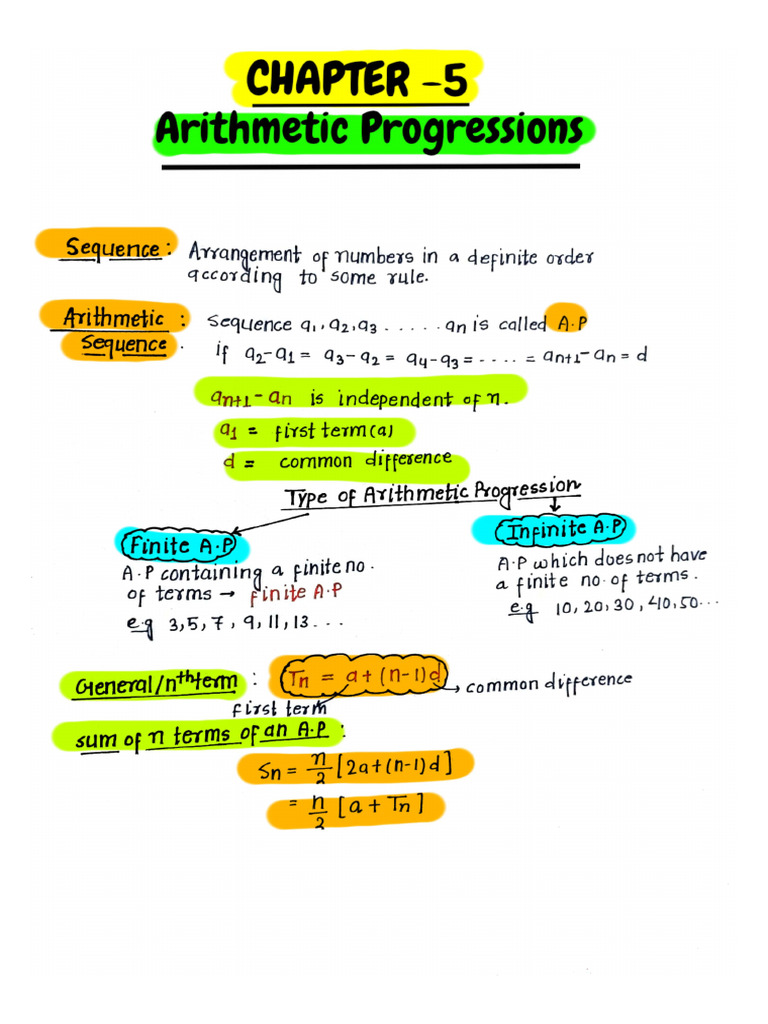 CHAPTER -5
Arithmetic Progressions
Sequence: Arrangement of numbers in a definite order
according to some rule.
Arithmetic Sequence: Sequence a₁, a₂, a₃ ..... an is called A.P
if a₂-a₁ = a₃-a₂ = a₄-a₃ = .... = an+1-an = d
an+1-an is independent of n.
a₁ = first term(a)
d = common difference
Type of Arithmetic Progression
Finite A.P
A.P containing a finite no.
of terms → finite A.P
e.g 3, 5, 7, 9, 11, 13 ...
Infinite A.P
A.P which does not have
a finite no. of terms.
e.g 10, 20, 30, 40, 50...
General/nth term : Tn = a + (n-1)d → common difference
first term
sum of n terms of an A.P:
Sn = n/2 [2a+(n-1)d]
= n/2 [a + Tn]